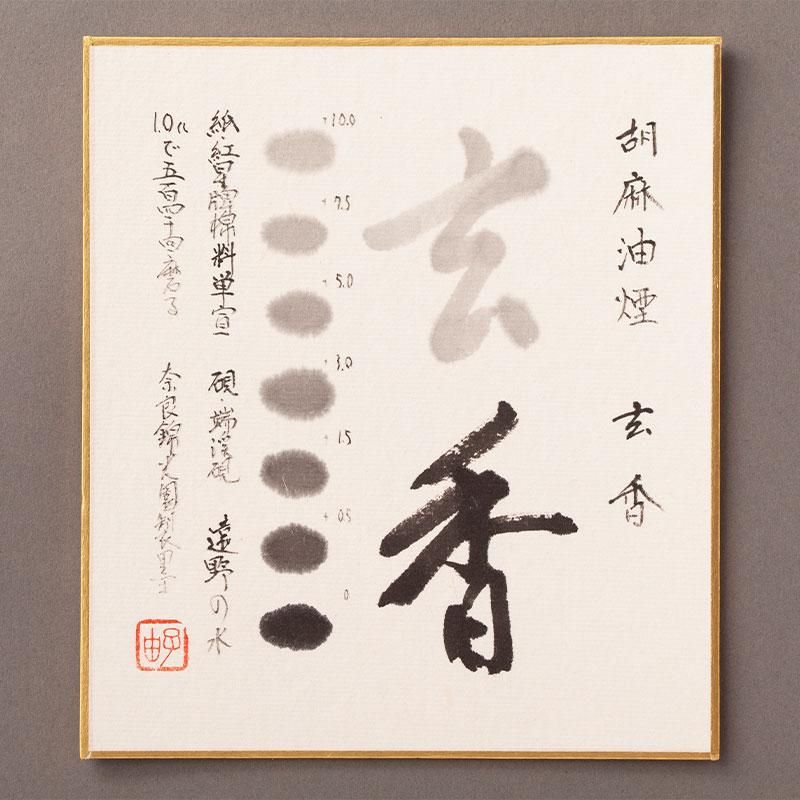 胡麻油煙 玄香
玄香
+10.0
+7.5
+5.0
+3.0
+1.5
+0.5
0
紙・紅星牌棉料単宣 硯・端渓硯 遠野の水
1.0ccで五百四十回磨る 奈良錦光園製